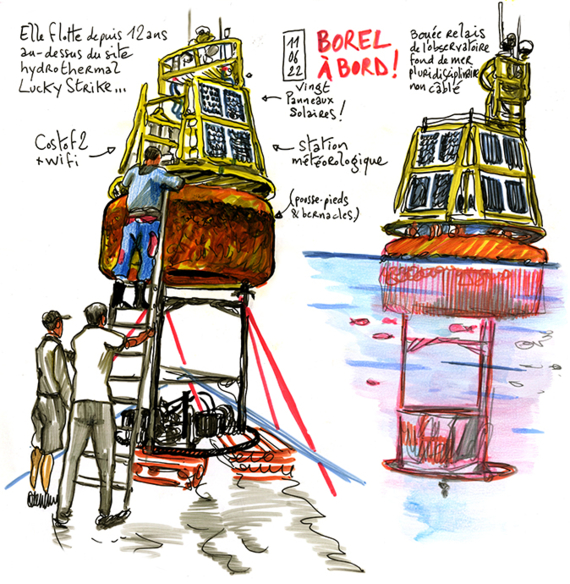 Elle flotte depuis 12 ans
au-dessus du site
hydrothermal
Lucky Strike...
11
06
22
BOREL
À BORD !
Bouée relais
de l'observatoire
fond de mer
pluridisciplinaire
non cablé
Vingt
Panneaux
Solaires !
Costof2
+ wifi
station
météorologique
(pousse-pieds
& bernacles)